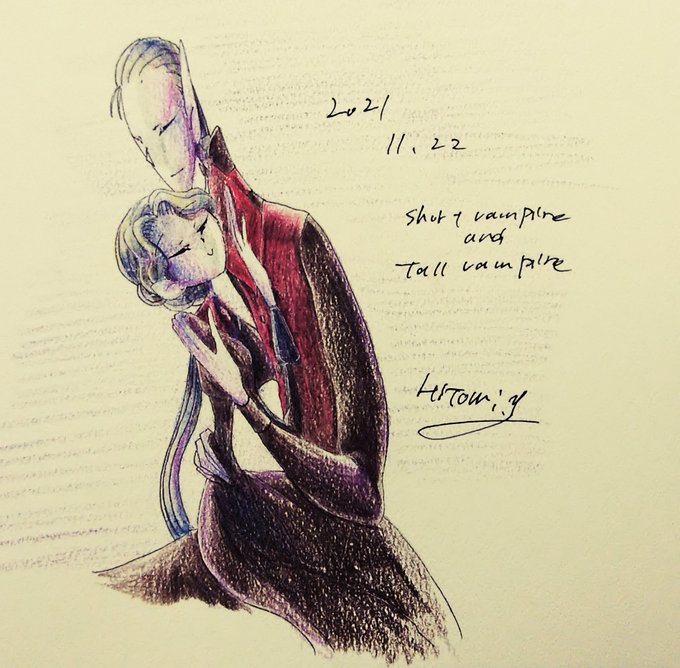 2021
11.22
Short vampire
and
Tall vampire
Hitomi.y